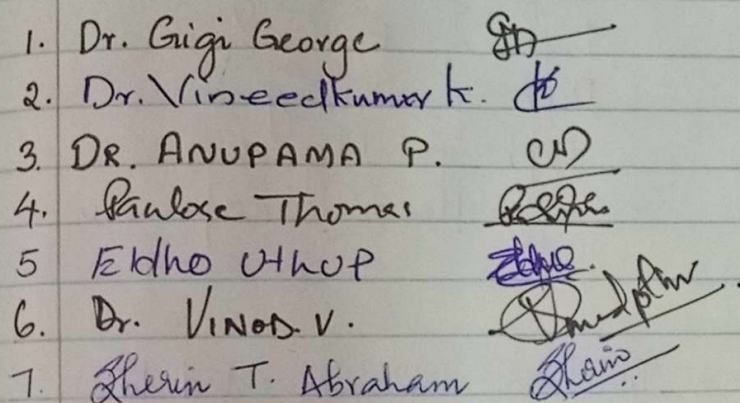 1. Dr. Gigi George
2. Dr. Vineedkumar K.
3. DR. ANUPAMA P.
4. Paulose Thomas
5 Eldho Uthup
6. Dr. VINOD. V.
7. Sherin T. Abraham Sherin